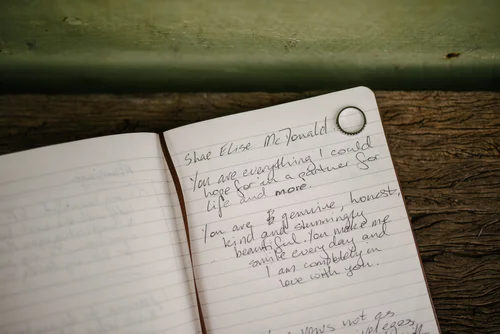 Shae Elise McDonald
You are everything I could
hope for in a partner for
life and more.
You are genuine, honest,
kind and stunningly
beautiful. You make me
smile every day and
I am completely in
love with you.
vows not as